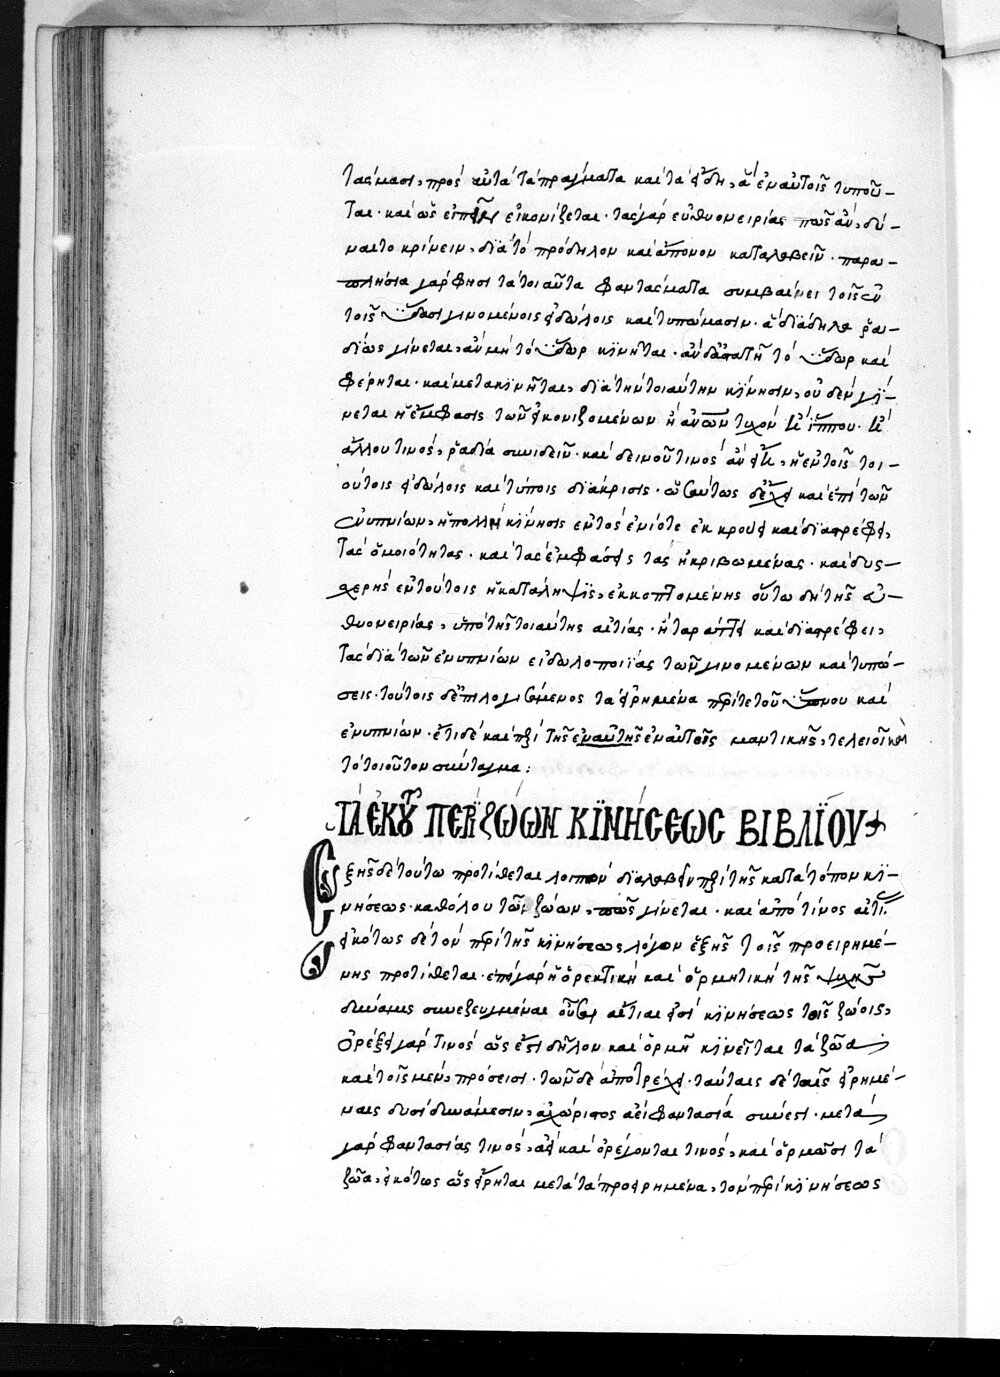 τασμασι, πρὸς αὐτὰ τὰ πράγματα καὶ τὰ εἴδη, ἃ ἐν αὐτοῖς τυποῦ-
ται· καὶ ὡς εἰπεῖν εἰκονίζεται· τὰς γὰρ εὐθυονειρίας πῶς ἂν, δύ-
ναιτο κρίνειν, διὰ τὸ πρόδηλον καὶ ἄπονον καταλαβεῖν· παρα-
πλήσια γάρ φησι τὰ τοιαῦτα φαντάσματα συμβαίνει τοῖς ἐν
τοῖς ὕδασι γινομένοις εἰδώλοις καὶ τυπώμασιν· ἃ διάδηλα ῥα-
δίως γίνεται, ἂν μὴ τὸ ὕδωρ κινῆται· ἂν δὲ ταράττῃ τὸ ὕδωρ καὶ
φέρηται· καὶ μετακινῆται, διὰ τὴν τοιαύτην κίνησιν, οὐδὲν γί-
νεται ἡ ἔμφασις τῶν εἰκονιζομένων ἢ ἀνων τυχὸν ἢ ἵππου· ἢ
ἄλλου τινός, ῥαδία συνιδεῖν· καὶ δεινοῦ τινος ἂν εἴη, ἡ ἐν τοῖς τοι-
ούτοις εἰδώλοις καὶ τύποις διάκρισις· ὡσαύτως δὲ ἔχει καὶ ἐπὶ τῶν
ἐνυπνίων, ἡ πολλὴ κίνησις ἐντὸς ἐνίοτε ἐκκρούει καὶ διαστρέφει,
τὰς ὁμοιότητας· καὶ τὰς ἐμφάσεις τὰς ἠκριβωμένας· καὶ δυσ-
χερὴς ἐν τούτοις ἡ κατάληψις, ἐκκοπτομένης οὕτω δὴ τῆς εὐ-
θυονειρίας, ὑπὸ τῆς τοιαύτης αἰτίας· ἣ ταράττει καὶ διαστρέφει,
τὰς διὰ τῶν ἐνυπνίων εἰδωλοποιΐας τῶν γινομένων καὶ τυπώ-
σεις· τούτοις δὲ ἐπιλογισάμενος τὰ εἰρημένα περί τε τοῦ ὕπνου καὶ
ἐνυπνίων· ἔτι δὲ καὶ περὶ τῆς ἐν αὐτῆς ἐν αὐτοῖς μαντικῆς, τελειοῖ καὶ
τὸ τοιοῦτον σύνταγμα:
ΤΑ ΕΚ ΤΟΥ ΠΕΡΙ ΖΩΩΝ ΚΙΝΗΣΕΩΣ ΒΙΒΛΙΟΥ
Ἑξῆς δὲ τούτω προτίθεται λοιπὸν διαλαβεῖν περὶ τῆς κατὰ τόπον κι-
νήσεως· καθόλου τῶν ζώων, πῶς γίνεται· καὶ ἀπὸ τίνος αἰτί
Εἰκότως δὲ τὸν περὶ τῆς κινήσεως λόγον ἑξῆς τοῖς προειρημέ-
νης προτίθεται· ἐπεὶ γὰρ ἡ ὀρεκτικὴ καὶ ὁρμητικὴ τῆς ψυχῆς
δυνάμις συνεζευγμέναι οὖσαι αἴτιαι εἰσὶ κινήσεως τοῖς ζώοις,
ὀρέξει γάρ τινος ὥς ἐστι δῆλον καὶ ὁρμῇ κινεῖται τὰ ζῶα
καὶ τοῖς μέν, πρόσεισι· τῶν δὲ ἀποτρέχει· ταύταις δὲ ταῖς εἰρημέ-
ναις δυσὶ δυνάμεσιν, ἀχώριστος ἀεὶ φαντασία σύνεστι· μετὰ
γὰρ φαντασίας τινός, ἀεὶ καὶ ὀρέγονται τινός, καὶ ὁρμῶσι τὰ
ζῶα, εἰκότως ὡς εἴρηται μετὰ τὰ προειρημένα, τὸν περὶ κινήσεως